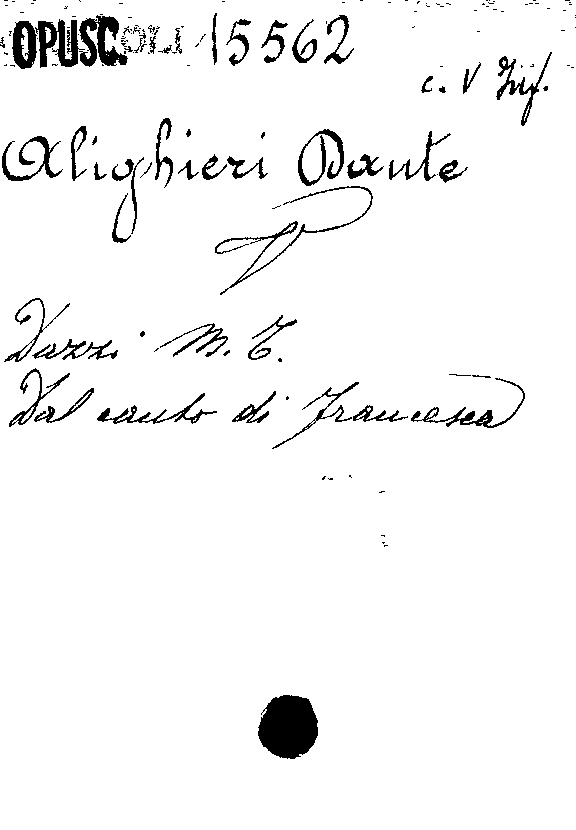 OPUSC. 15562
c. V Inf.
Alighieri Dante
V
Dazzi M. T.
Dal canto di Francesca